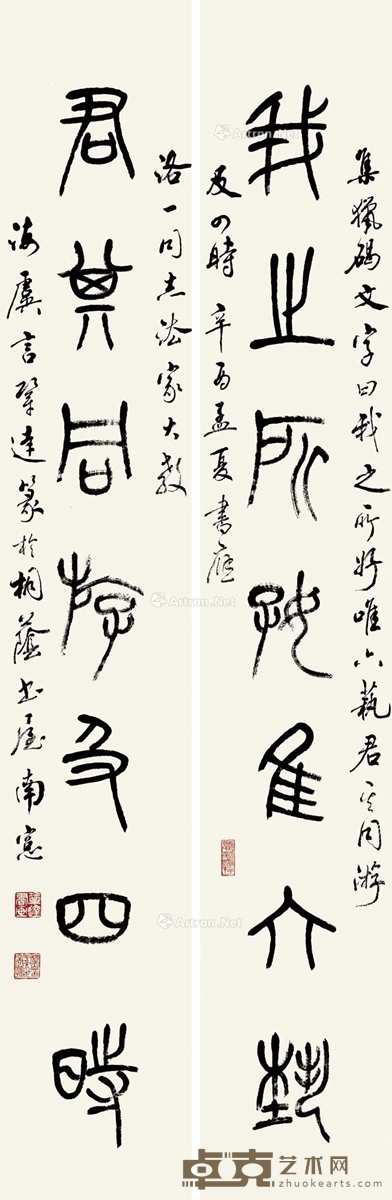 集獵碣文字曰我之所好唯六藝君其同游
我之所好隹六埶
及四時 辛酉孟夏書應
洛一同志法家大教
君其同游及四時
海虞言達篆於桐蔭書屋南窗
Artron.Net
Artron.Net
Artron.Net
Artron.Net
Artron.Net
Artron.Net
卓克艺术网
zhuokearts.com